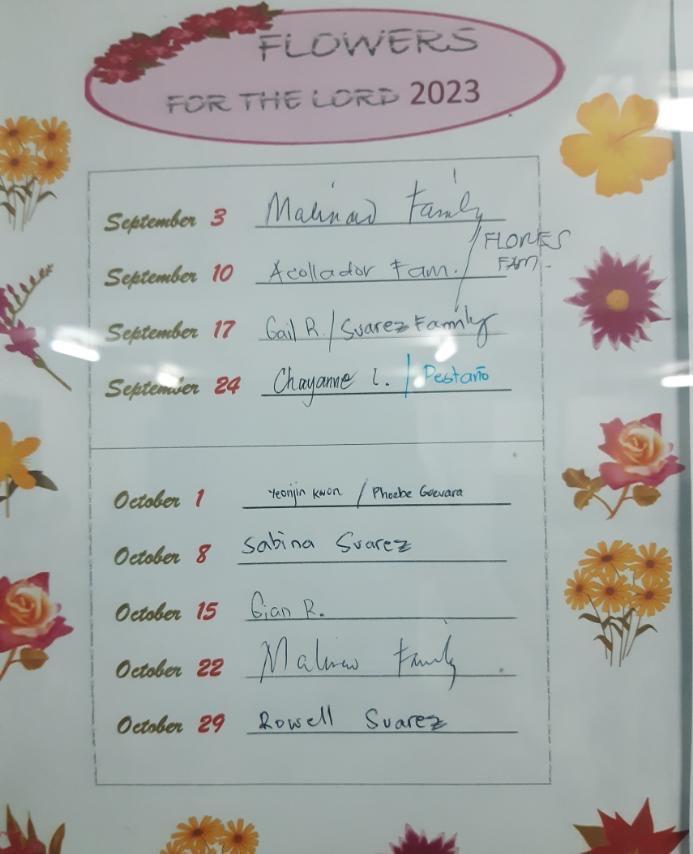 FLOWERS
FOR THE LORD 2023
September 3 Malinao Family
FLORES
FAM.
September 10 Acollador Fam.
September 17 Gail R. / Suarez Family
September 24 Chayanne L. / Pestaño
October 1 Yeonjin Kwon / Phoebe Guevara
October 8 Sabina Suarez
October 15 Gian R.
October 22 Malinao Family
October 29 Rowell Suarez